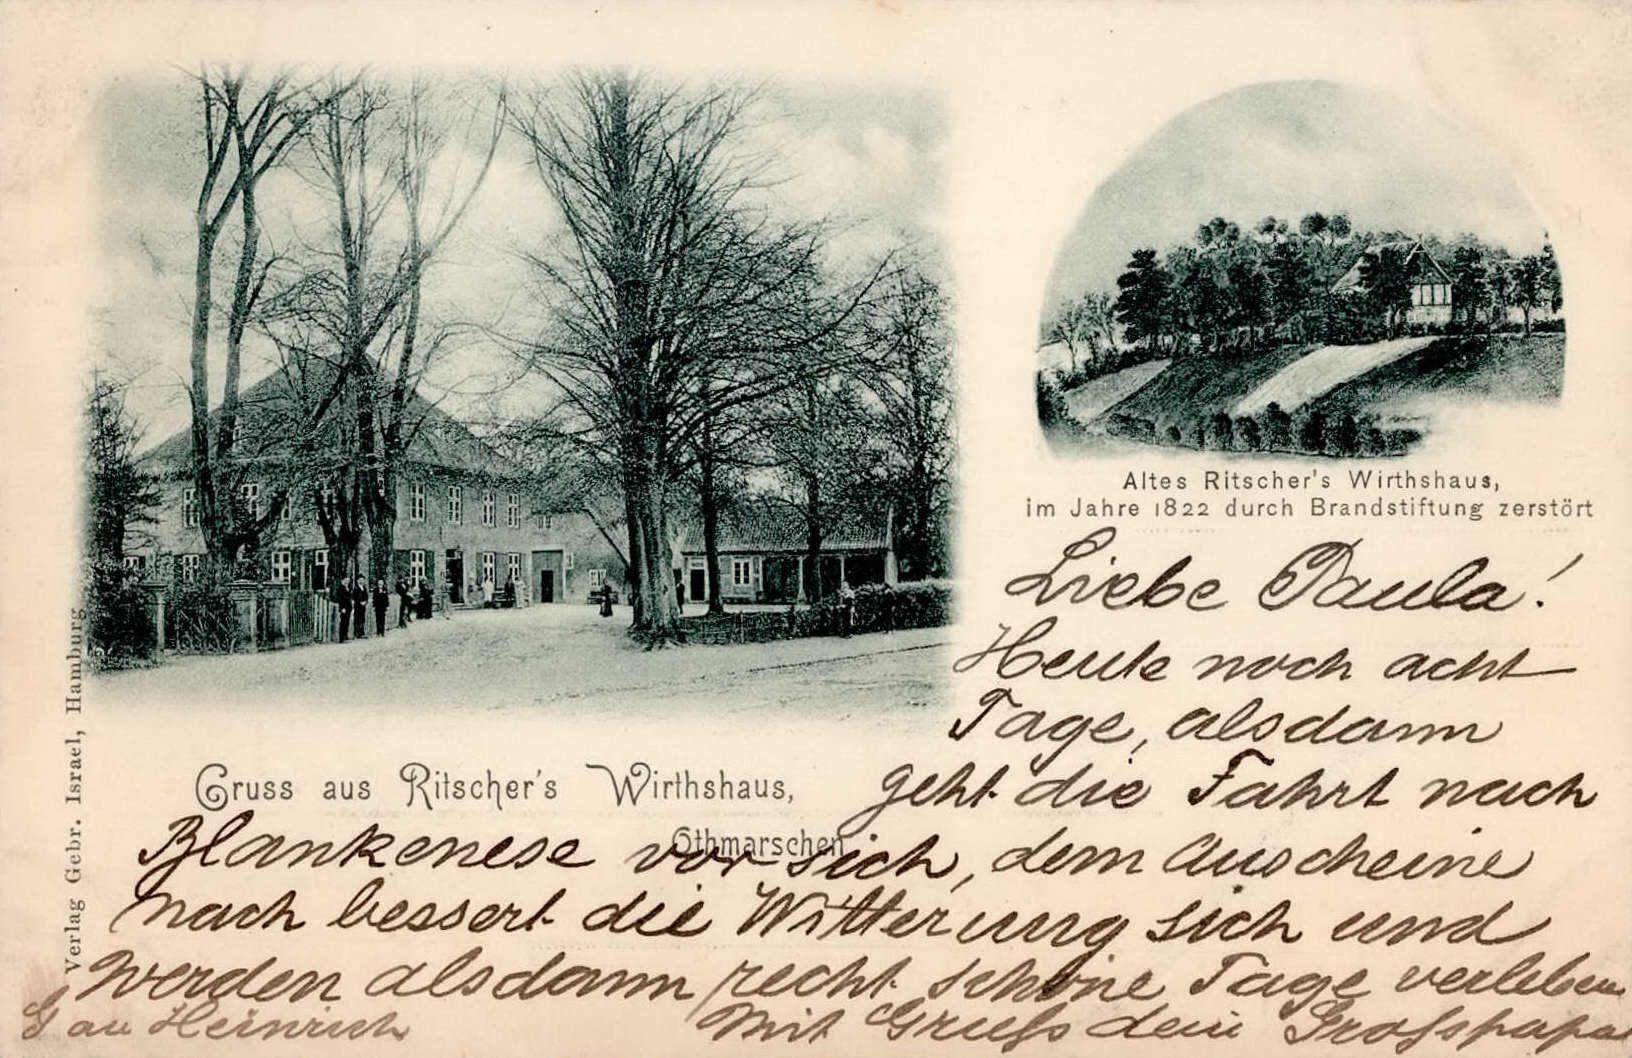 Altes Ritscher's Wirthshaus,
im Jahre 1822 durch Brandstiftung zerstört
Gruss aus Ritscher's Wirthshaus,
Othmarschen
Verlag Gebr. Israel, Hamburg
Liebe Paula!
Heute noch acht
Tage, alsdann
geht die Fahrt nach
Blankenese vor sich, dem Anscheine
nach bessert die Witterung sich und
werden alsdann recht schöne Tage verleben
Mit Gruß dein Großpapa
G an Heinrich